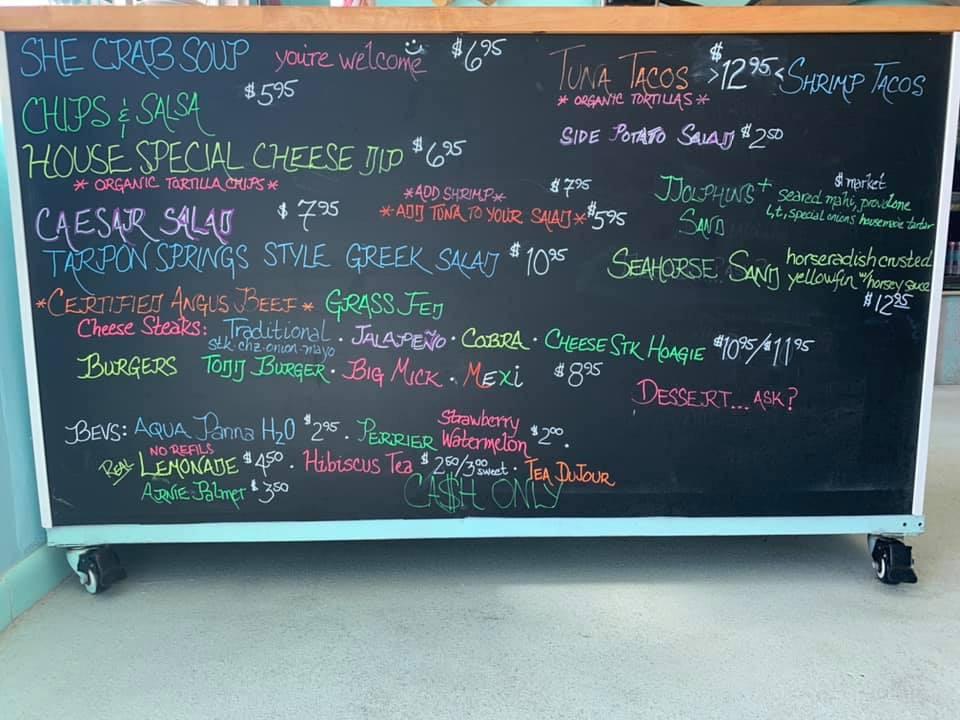 SHE CRAB SOUP you're welcome $6.95
CHIPS & SALSA $5.95
HOUSE SPECIAL CHEESE DIP $6.95
* ORGANIC TORTILLA CHIPS *
CAESAR SALAD $7.95
*ADD SHRIMP* $7.95
* ADD TUNA TO YOUR SALAD * $5.95
TARPON SPRINGS STYLE GREEK SALAD $10.95
*CERTIFIED ANGUS BEEF* GRASS FED
Cheese Steaks: Traditional · JALAPEÑO · COBRA · CHEESE STK HOAGIE $10.95/$11.95
stk-chz-onion-mayo
BURGERS TODD BURGER · BIG MICK · MEXI $8.95
TUNA TACOS >$12.95< SHRIMP TACOS
* ORGANIC TORTILLAS *
SIDE POTATO SALAD $2.50
DOLPHINS+ SAND
$ market
seared mahi, provolone
l,t, special onions housemade tartar
SEAHORSE SAND horseradish crusted
yellowfin w/horsey sauce
$12.95
DESSERT... ASK?
BEVS: AQUA Panna H2O $2.95 · PERRIER Strawberry
Watermelon $2.00 ·
NO REFILS
REAL LEMONADE $4.50 · Hibiscus Tea $2.50/3.00 sweet · TEA DUJOUR
ARNIE Palmer $3.50
CA$H ONLY